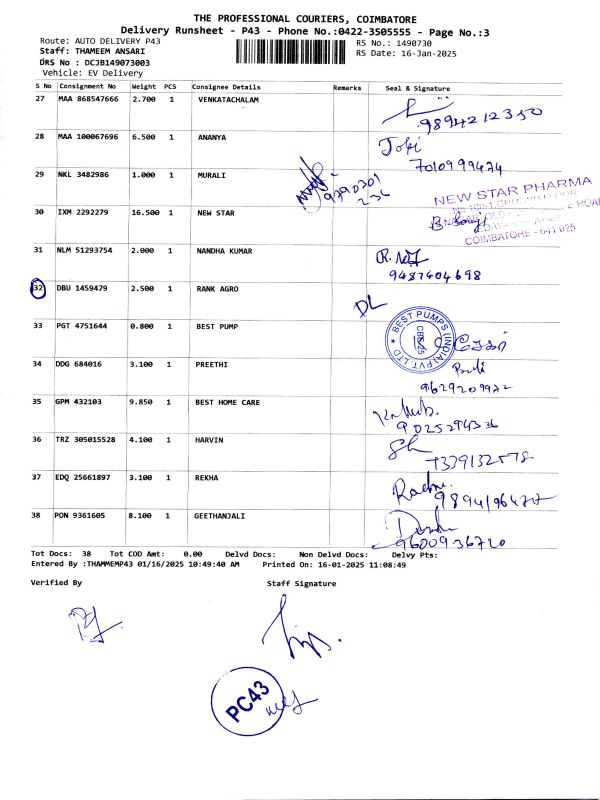 THE PROFESSIONAL COURIERS, COIMBATORE
Delivery Runsheet - P43 - Phone No.:0422-3505555 - Page No.:3
Route: AUTO DELIVERY P43 RS No.: 1490730
Staff: THAMEEM ANSARI RS Date: 16-Jan-2025
DRS No : DCJB149073003
Vehicle: EV Delivery
S No Consignment No Weight PCS Consignee Details Remarks Seal & Signature
27 MAA 868547666 2.700 1 VENKATACHALAM
9894212350
28 MAA 100067696 6.500 1 ANANYA
7010999474
29 NKL 3482986 1.000 1 MURALI
9790301
236
30 IXM 2292279 16.500 1 NEW STAR
NEW STAR PHARMA
COIMBATORE - 641 025
31 NLM 51293754 2.000 1 NANDHA KUMAR
9487404698
32 DBU 1459479 2.500 1 RANK AGRO
DL
33 PGT 4751644 0.800 1 BEST PUMP
BEST PUMPS (INDIA) PVT. LTD
34 DDG 684016 3.100 1 PREETHI
9629209972
35 GPM 432103 9.850 1 BEST HOME CARE
9025294336
36 TRZ 305015528 4.100 1 HARVIN
7339132578
37 EDQ 25661897 3.100 1 REKHA
38 PON 9361605 8.100 1 GEETHANJALI
9600936720
Tot Docs: 38 Tot COD Amt: 0.00 Delvd Docs: Non Delvd Docs: Delvy Pts:
Entered By :THAMMEMP43 01/16/2025 10:49:40 AM Printed On: 16-01-2025 11:08:49
Verified By Staff Signature
PC43